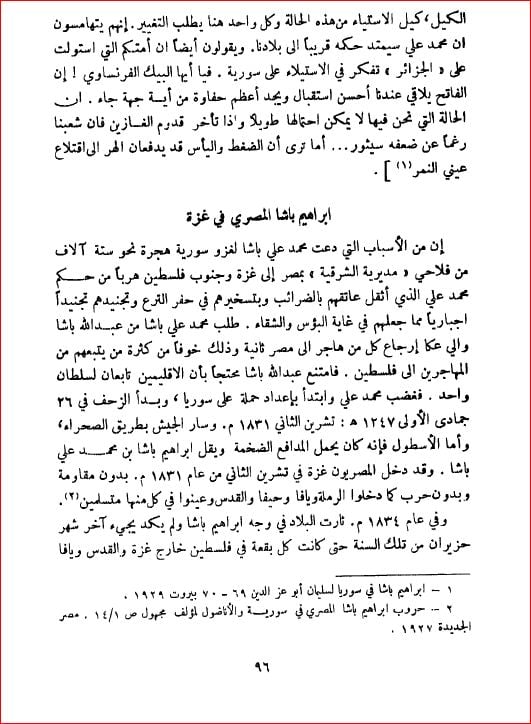 الكيل، كيل الاستياء من هذه الحالة وكل واحد هنا يطلب التغيير. إنهم يتهامسون
ان محمد علي سيمتد حكمه قريباً الى بلادنا. ويقولون أيضاً ان أمتكم التي استولت
على « الجزائر » تفكر في الاستيلاء على سورية . فيا أيها البيك الفرنساوي ! إن
الفاتح يلاقي عندنا أحسن استقبال ويجد أعظم حفاوة من أية جهة جاء . ان
الحالة التي نحن فيها لا يمكن احتمالها طويلاً واذا تأخر قدوم الغازين فان شعبنا
رغماً عن ضعفه سيثور... أما ترى أن الضغط واليأس قد يدفعان الهر الى اقتلاع
عيني النمر(١) ] .
ابراهيم باشا المصري في غزة
إن من الأسباب التي دعت محمد علي باشا لغزو سورية هجرة نحو ستة آلاف
من فلاحي « مديرية الشرقية » بمصر إلى غزة وجنوب فلسطين هرباً من حكم
محمد علي الذي أثقل عاتقهم بالضرائب وبتسخيرهم في حفر الترع وتجنيدهم تجنيداً
اجبارياً مما جعلهم في غاية البؤس والشقاء . طلب محمد علي باشا من عبدالله باشا
والي عكا إرجاع كل من هاجر الى مصر ثانية وذلك خوفاً من كثرة من يتبعهم من
المهاجرين الى فلسطين . فامتنع عبدالله باشا محتجاً بأن الاقليمين تابعان لسلطان
واحد . فغضب محمد علي وابتدأ بإعداد حملة على سوريا ، وبدأ الزحف في ٢٦
جمادى الأولى ١٢٤٧ هـ : تشرين الثاني ١٨٣١ م. وسار الجيش بطريق الصحراء،
وأما الأسطول فإنه كان يحمل المدافع الضخمة ويقل ابراهيم باشا بن محمد علي
باشا . وقد دخل المصريون غزة في تشرين الثاني من عام ١٨٣١ م. بدون مقاومة
وبدون حرب كما دخلوا الرملة ويافا وحيفا والقدس وعينوا في كل منها متسلمين(٢).
وفي عام ١٨٣٤ م. ثارت البلاد في وجه ابراهيم باشا ولم يكد يجيء آخر شهر
حزيران من تلك السنة حتى كانت كل بقعة في فلسطين خارج غزة والقدس ويافا
١ – ابراهيم باشا في سوريا لسليمان أبو عز الدين ٦٩ - ٧٠ بيروت ١٩٢٩ .
٢ – حروب ابراهيم باشا المصري في سورية والأناضول لمؤلف مجهول ص ١٤/١ . مصر
الجديدة ١٩٢٧ .
٩٦